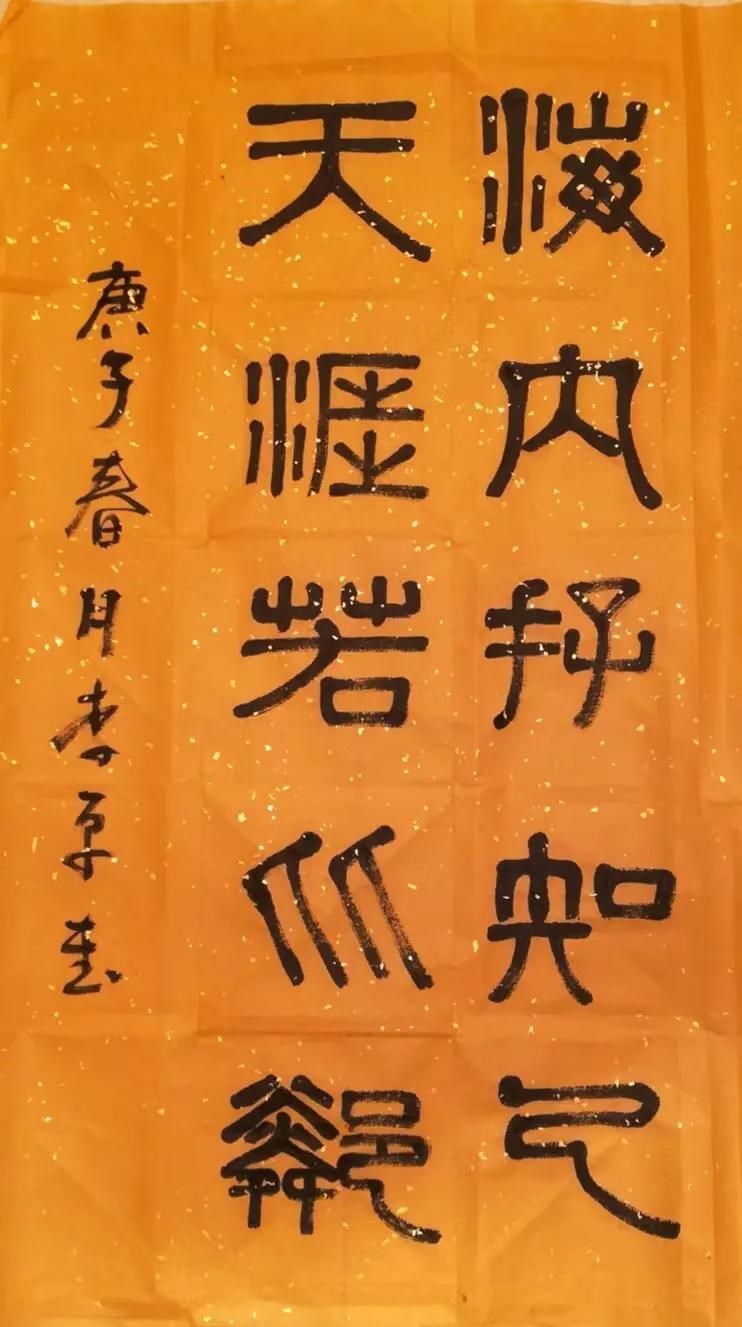 海内存知己
天涯若比鄰
庚子春月李